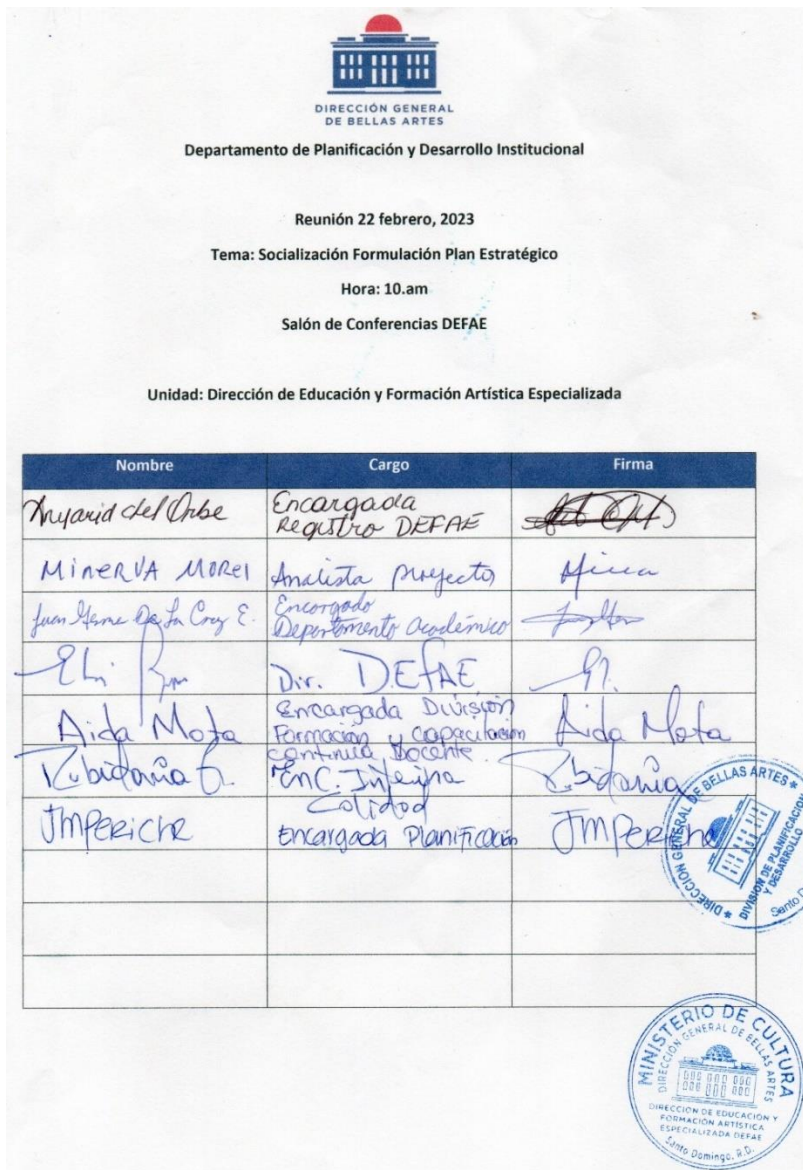 DIRECCIÓN GENERAL
DE BELLAS ARTES
Departamento de Planificación y Desarrollo Institucional
Reunión 22 febrero, 2023
Tema: Socialización Formulación Plan Estratégico
Hora: 10.am
Salón de Conferencias DEFAE
Unidad: Dirección de Educación y Formación Artística Especializada
Nombre Cargo Firma
del Orbe Encargada
Registro DEFAE
MINERVA MOREL Analista proyectos
Juan De La Cruz E. Encargado
Departamento Académico
Dir. DEFAE
Aida Mota Encargada División Aida Mota
Formación y capacitación
continua Docente
Rubidania Enc. Interina Rubidania
Calidad
JMPERICHE Encargada Planificación JMPeriche
DIRECCION GENERAL DE BELLAS ARTES
DIVISION DE PLANIFICACION
Y DESARROLLO
Santo D
MINISTERIO DE CULTURA
DIRECCIÓN GENERAL DE BELLAS ARTES
DIRECCIÓN DE EDUCACIÓN Y
FORMACIÓN ARTÍSTICA
ESPECIALIZADA DEFAE
Santo Domingo, R.D.